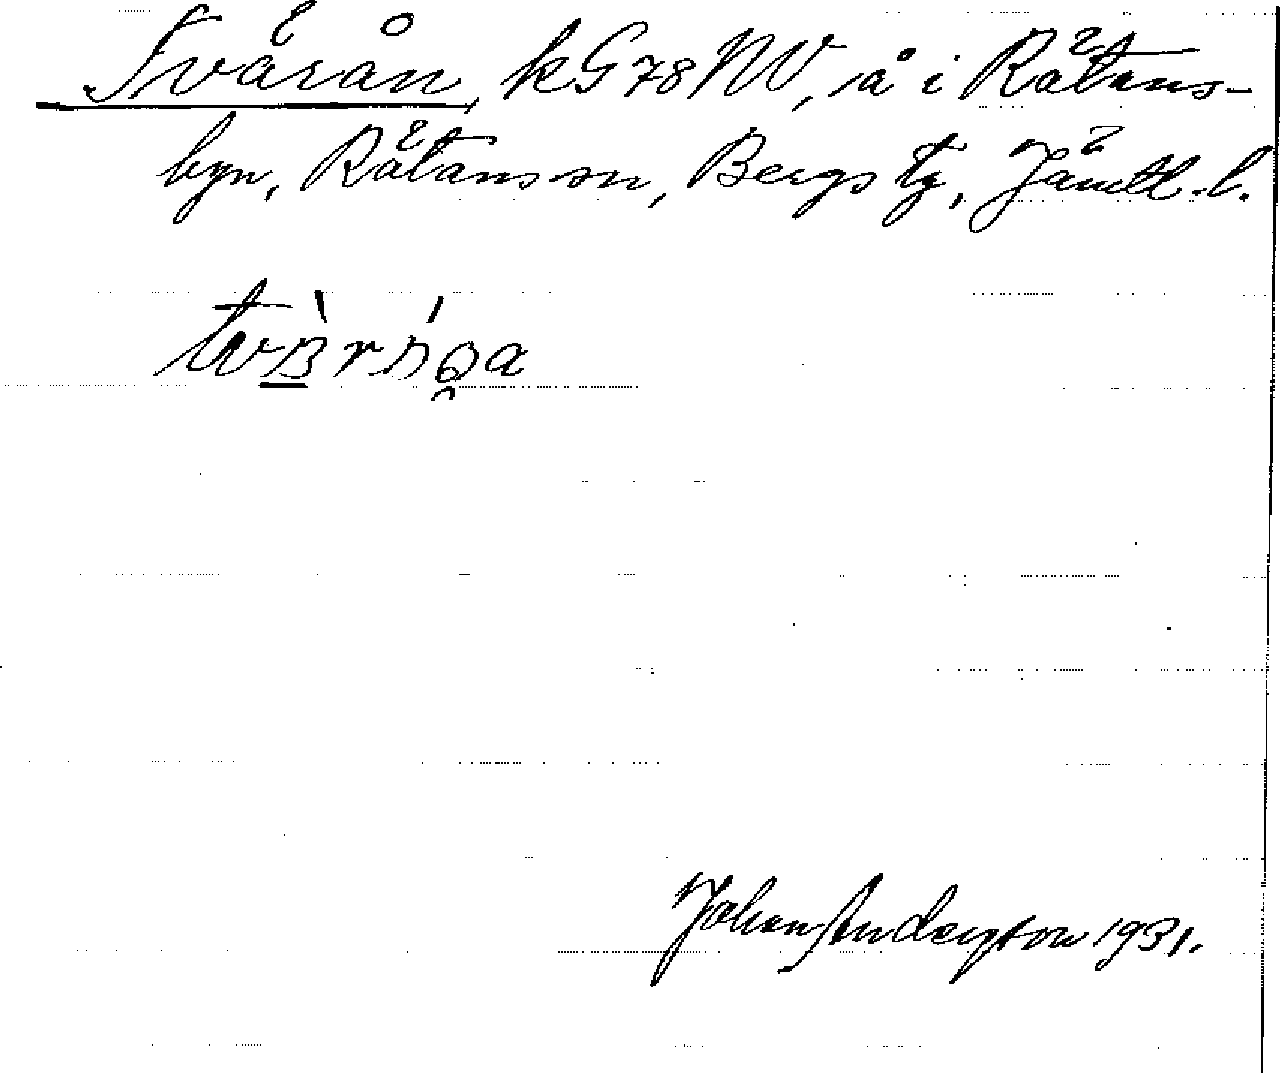 Tvårån, kG78NV, å i Råtans-
byn, Råtans sn, Bergs tg, Jämtl. l.
Johan Anderson 1931.